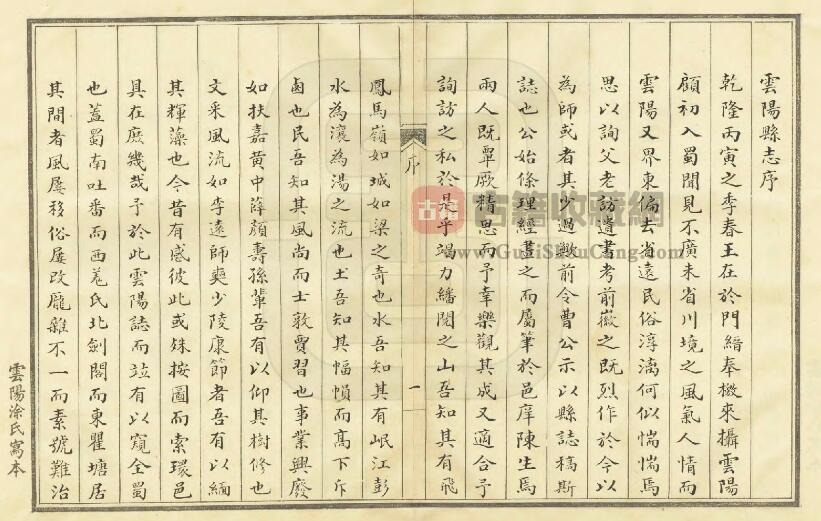 雲陽縣志序
乾隆丙寅之季春王在於門縉奉檄來攝雲陽
顧初入蜀聞見不廣未省川境之風氣人情而
雲陽又界東偏去省遠民俗淳漓何似惴惴焉
思以詢父老訪遺書考前徽之既烈作於今以
為師或者其少過歟前令曹公示以縣誌稿斯
誌也公始條理經畫之而屬筆於邑庠陳生馬
兩人既覃厥精思而予幸樂觀其成又適合予
詢訪之私於是乎竭力繙閱之山吾知其有飛
序
一
鳳馬嶺如城如梁之奇也水吾知其有岷江彭
水為瀼為湯之流也土吾知其幅幀而高下斥
鹵也民吾知其風尚而士敦賈習也事業興廢
如扶嘉黄中薛顏壽孫輩吾有以仰其樹修也
文采風流如李遠師奭少陵康節者吾有以緬
其輝藻也今昔有感彼此或殊按圖而索環邑
具在庶幾哉予於此雲陽誌而竝有以窺全蜀
也蓋蜀南吐番而西羌氏北劍閣而東瞿塘居
其間者風屢移俗屢改龐雜不一而素號難治
雲陽涂氏寫本
古籍
古籍收藏網
www.GuJiShuCang.com